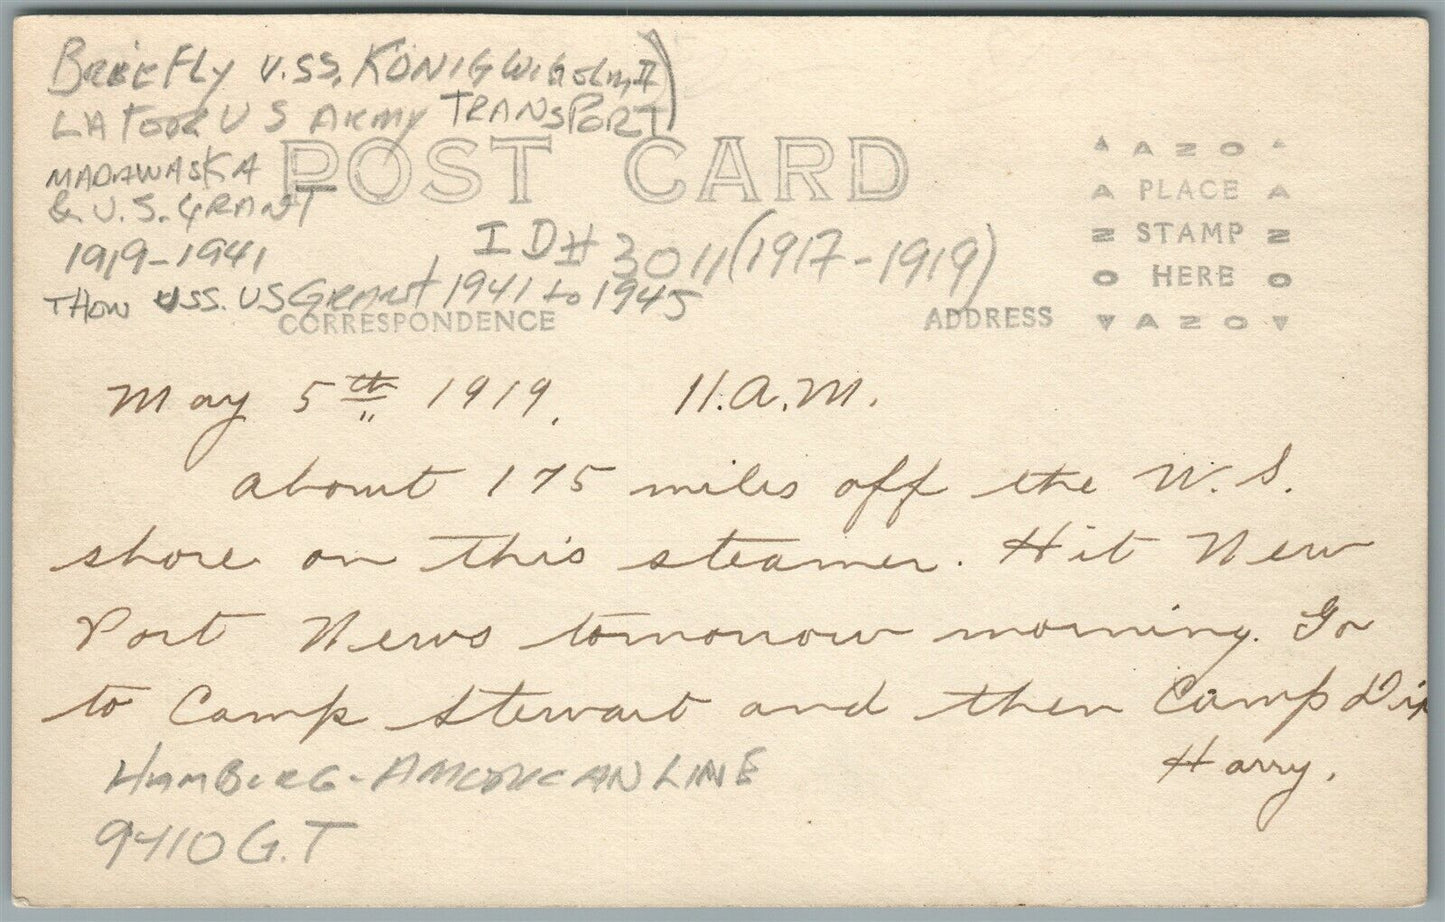 BRIEFLY U.SS. KÖNIG WILHOLM II)
LATOOR US ARMY TRANSPORT
MADAWASKA
& U.S. GRANT
1919-1941
THON USS. US GRANT 1941 to 1945
ID# 3011 (1917-1919)
POST CARD
CORRESPONDENCE
ADDRESS
AZO
A PLACE A
Z STAMP Z
O HERE O
AZO
May 5th 1919. 11. A.M.
About 175 miles off the U.S.
shore on this steamer. Hit New
Port News tomorrow morning. Go
to Camp Stewart and then Camp Dix
Harry.
HAMBURG-AMERICAN LINE
9410 G.T